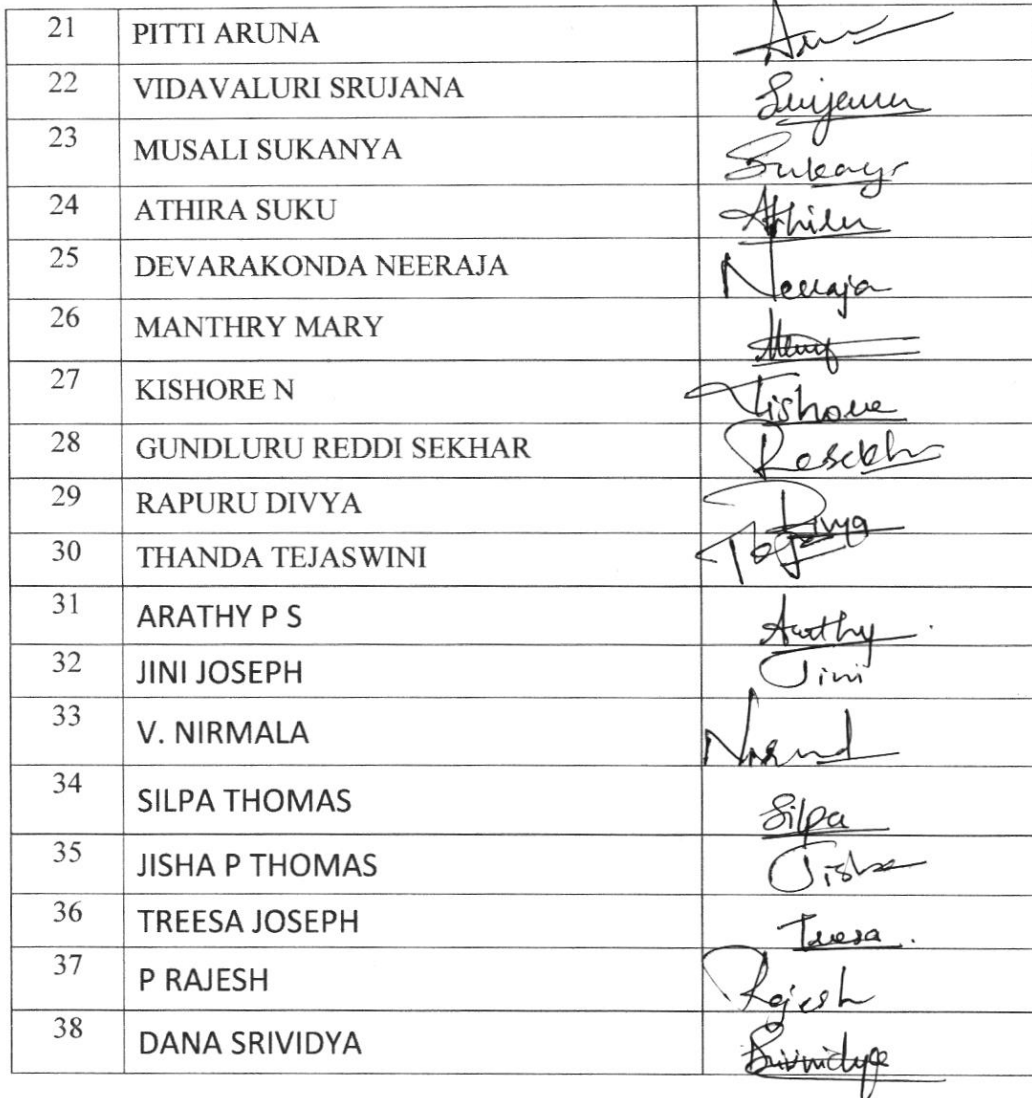 21 PITTI ARUNA
22 VIDAVALURI SRUJANA
23 MUSALI SUKANYA
24 ATHIRA SUKU
25 DEVARAKONDA NEERAJA Neeraja
26 MANTHRY MARY
27 KISHORE N Kishore
28 GUNDLURU REDDI SEKHAR
29 RAPURU DIVYA Divya
30 THANDA TEJASWINI
31 ARATHY P S
32 JINI JOSEPH Jini
33 V. NIRMALA
34 SILPA THOMAS Silpa
35 JISHA P THOMAS Jisha
36 TREESA JOSEPH
37 P RAJESH Rajesh
38 DANA SRIVIDYA